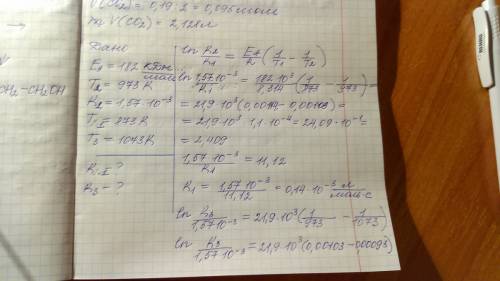 V(CH₄) = 0,19 : 2 = 0,095 моль
m V(CO₂) = 2,128 л
Дано
E₁ = 182 кДж/моль
T₂ = 973 K
K₂ = 1,57 · 10⁻³
T₁ = 873 K
T₃ = 1073 K
K₁ - ?
K₃ - ?
CH₂-CH₂OH
ln K₂/K₁ = Ea/R (1/T₁ - 1/T₂)
ln 1,57·10⁻³/K₁ = 182·10³/8,314 (1/873 - 1/973) =
= 21,9 · 10³ (0,0014 - 0,00103) =
= 21,9 · 10³ · 1,1 · 10⁻⁴ = 24,09 · 10⁻¹ =
= 2,409
1,57 · 10⁻³/K₁ = 11,12
K₁ = 1,57 · 10⁻³/11,12 = 0,14 · 10⁻³ л/моль·с
ln K₃/1,57 · 10⁻³ = 21,9 · 10³ (1/973 - 1/1073)
ln K₃/1,57 · 10⁻³ = 21,9 · 10³ (0,00103 - 0,00093)